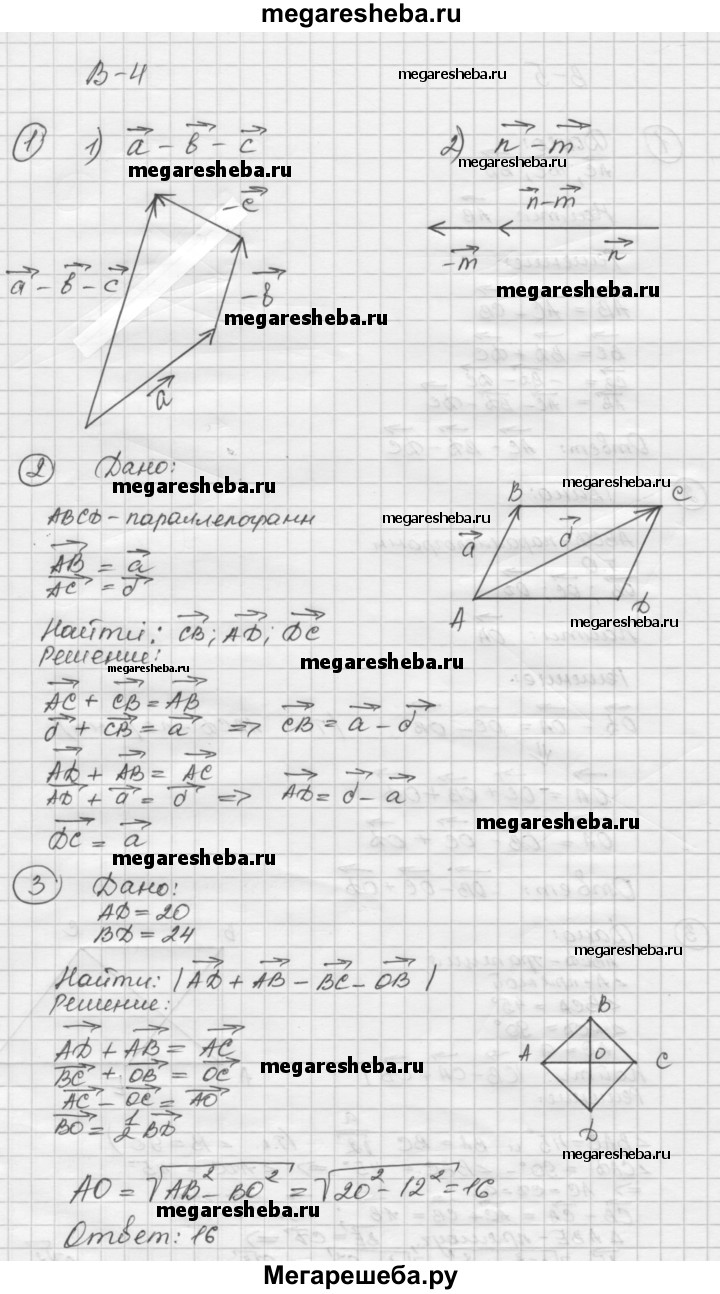 megaresheba.ru
В-4
megaresheba.ru
1 1) a - в - c 2) n - m
megaresheba.ru
megaresheba.ru
-c
n-m
a - в - c
-m
n
-в
megaresheba.ru
megaresheba.ru
a
2 Дано:
megaresheba.ru
megaresheba.ru
B C
ABCD - параллелограмм
megaresheba.ru
a
d
AB = a
AC = d
megaresheba.ru
A D
megaresheba.ru
Найти: CB; AD; DC
Решение:
megaresheba.ru
megaresheba.ru
AC + CB = AB
d + CB = a => CB = a - d
AD + AB = AC
AD + a = d => AD = d - a
DC = a
megaresheba.ru
megaresheba.ru
3 Дано:
AD = 20
BD = 24
megaresheba.ru
Найти: | AD + AB - BC - OB |
Решение:
B
AD + AB = AC
A O C
BC + OB = OC
megaresheba.ru
AC - OC = AO
BO = 1/2 BD
D
megaresheba.ru
AO = √AB² - BO² = √20² - 12² = 16
megaresheba.ru
Ответ: 16
megaresheba.ru
Мегарешеба.ру